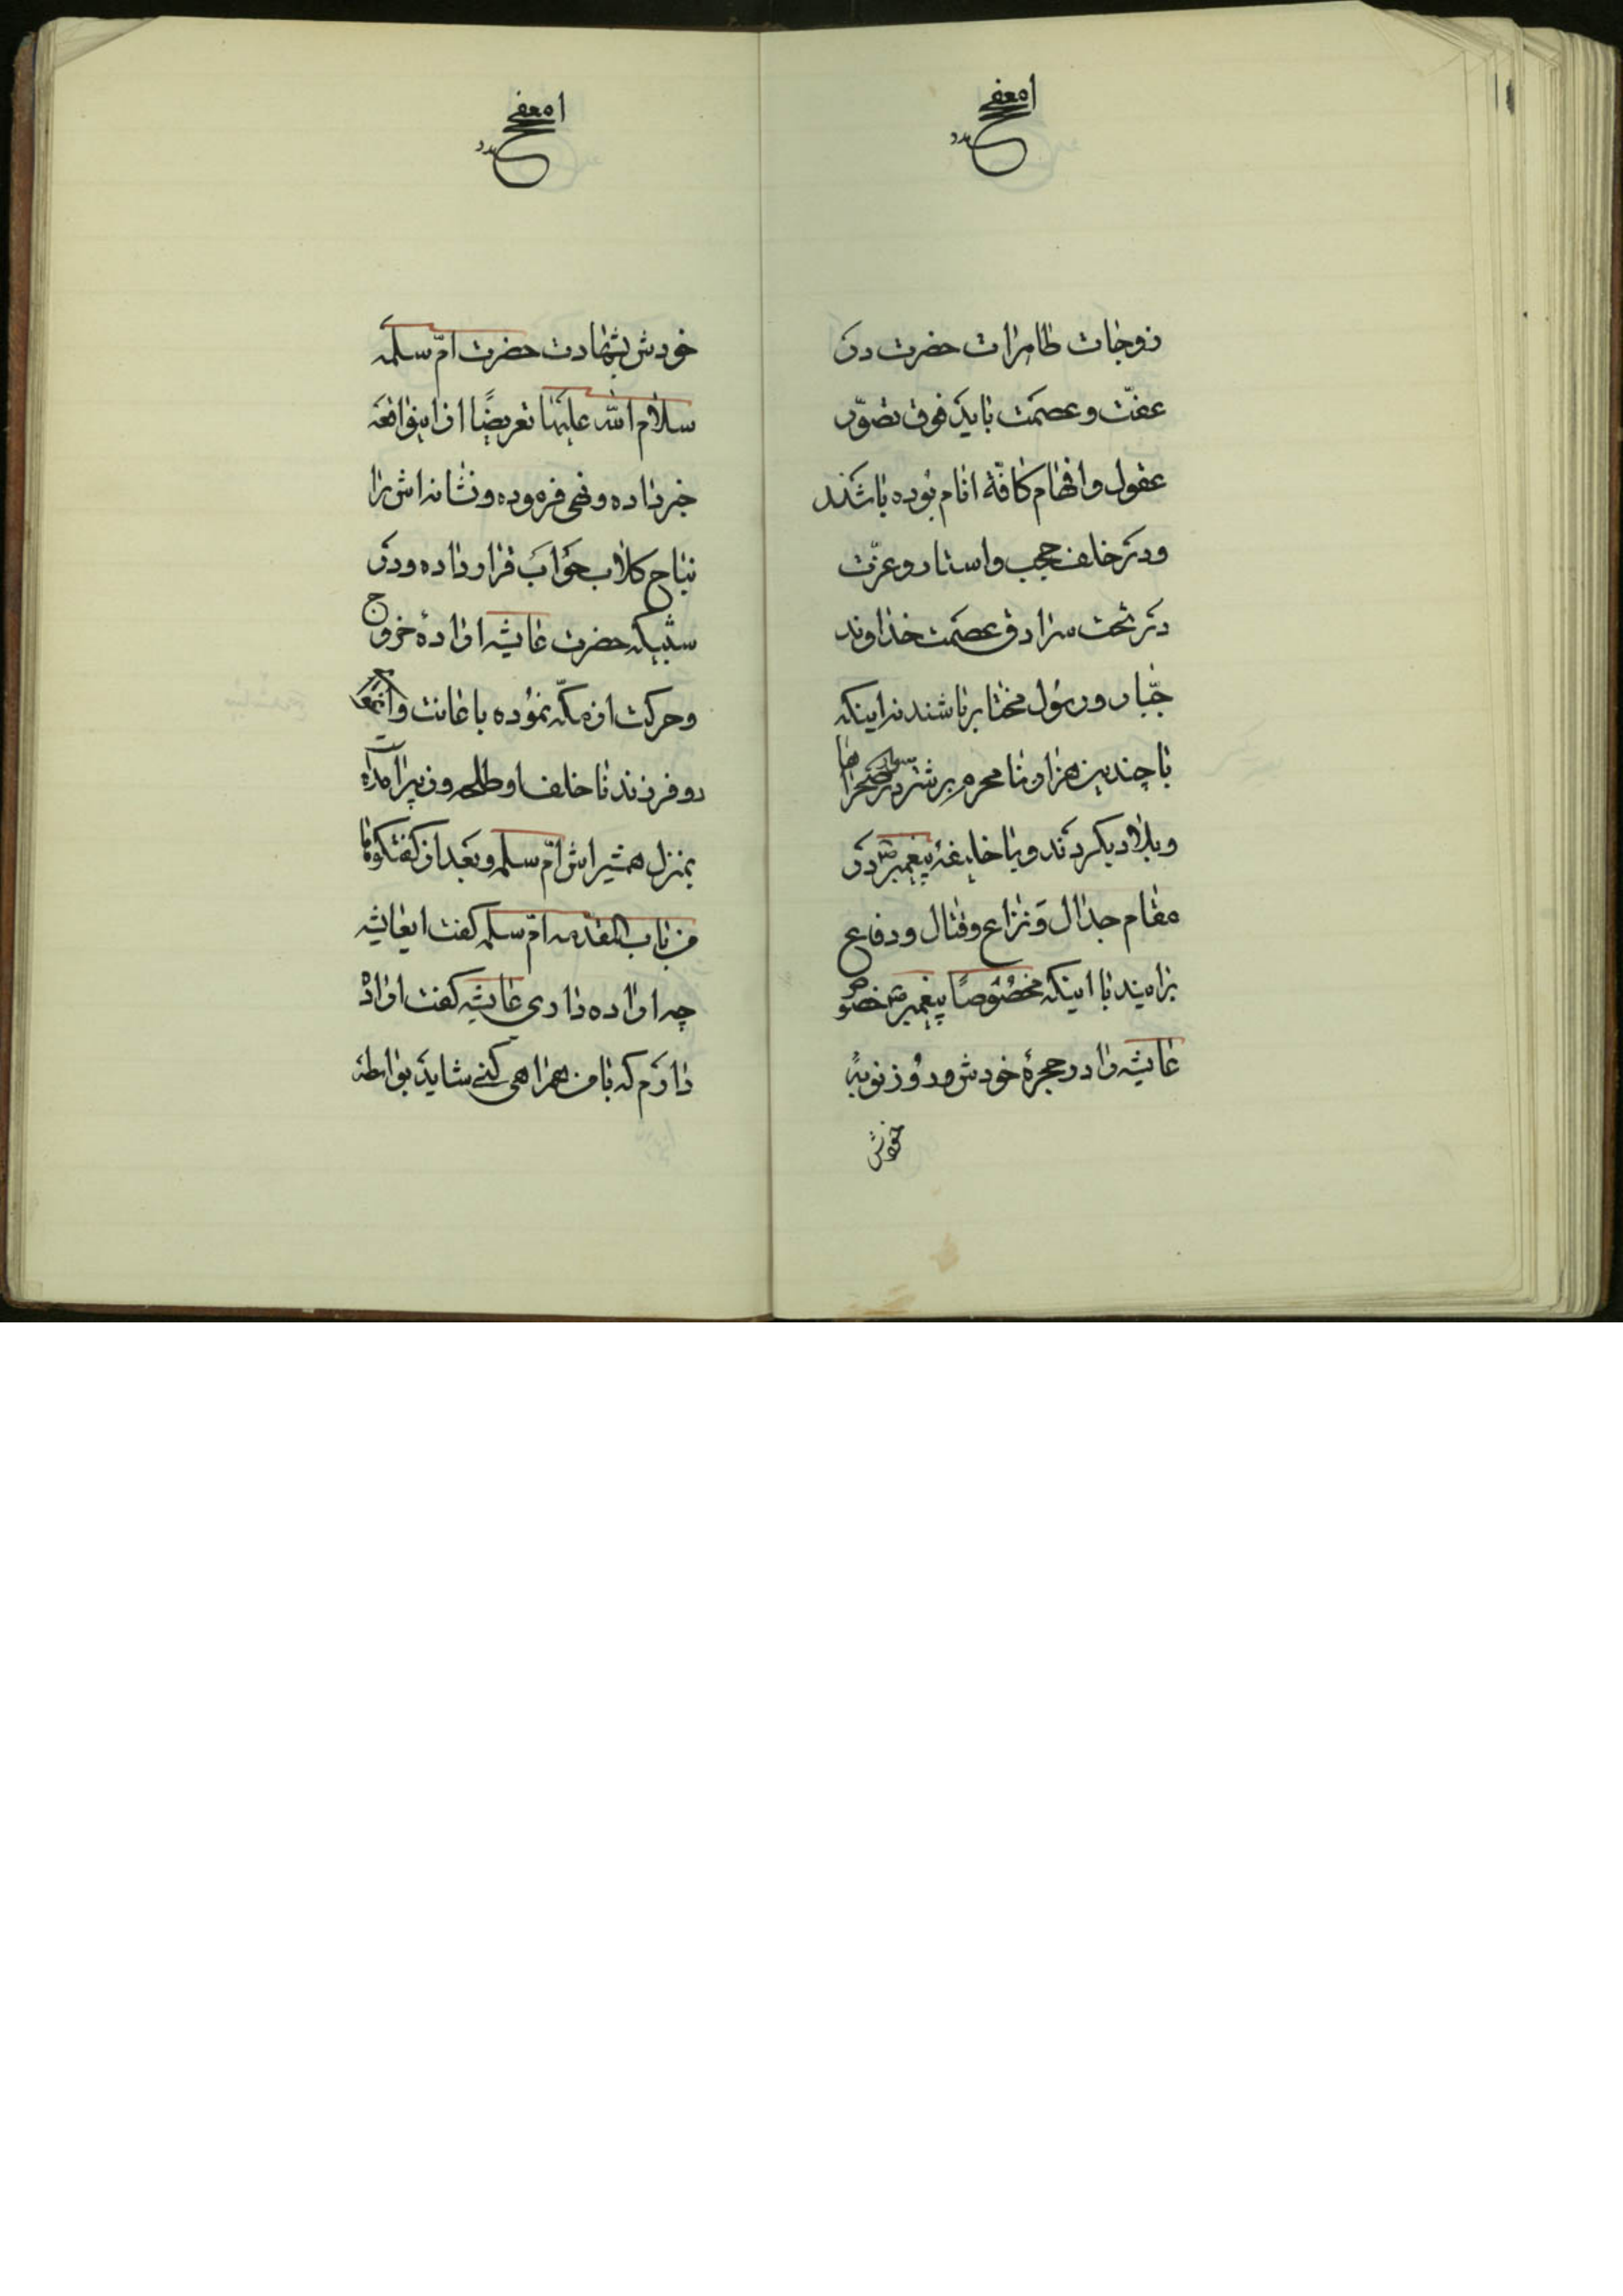 زوجات طاهرات حضرت در
عفّت و عصمت باید فوق تصوّر
عقول و افهام کافّهٔ انام بوده باشند
و در خلف حجب و استار و عزّت
در تحت سرادق عصمت خداوند
جبّار و رسول مختار باشند نه اینکه
با چندین هزار نامحرم بر شتر سوار در صحراها
و بلاد بگردند و با خلیفهٔ پیغمبر ص در
مقام جدال و نزاع و قتال و دفاع
برآیند با اینکه مخصوصاً پیغمبر ص خصوص
عایشه را در حجرهٔ خودش و روز نوبهٔ
خودش
خودش بشهادت حضرت امّ سلمه
سلام الله علیها تعریضاً از اینواقعه
خبر داده و نهی فرموده و نشانه‌اش را
نباح کلاب حوأب قرار داده و در
شبیکه حضرت عایشه ارادهٔ خروج
و حرکت از مکّه نموده با عانت و
دو فرزند ناخلف او طلحه و زبیر آمده
بمنزل همشیره‌اش امّ سلمه و بعد از گفتگوها
من باب المقدمه امّ سلمه گفت ایعایشه
چه اراده داری عایشه گفت اراده
دارم که با من همراهی کنی شاید بواسطهٔ